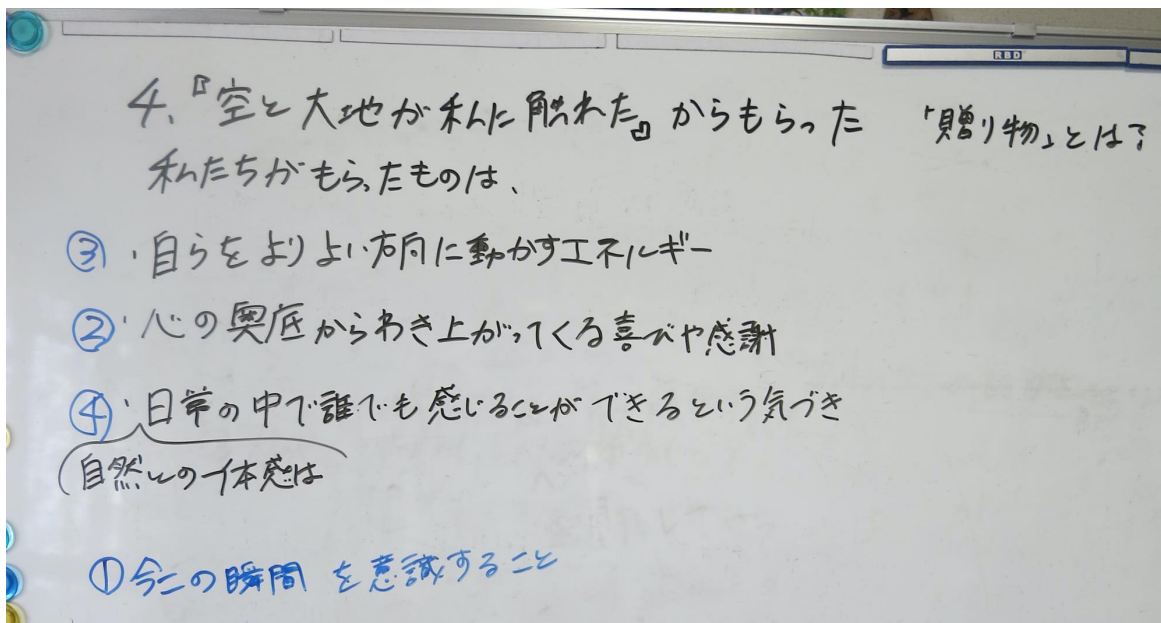 RBD
4.『空と大地が私に触れた』からもらった 「贈り物」とは?
私たちがもらったものは、
③・自らをよりよい方向に動かすエネルギー
②・心の奥底からわき上がってくる喜びや感謝
④・日常の中で誰でも感じることができるという気づき
(自然との一体感は
①今この瞬間を意識すること